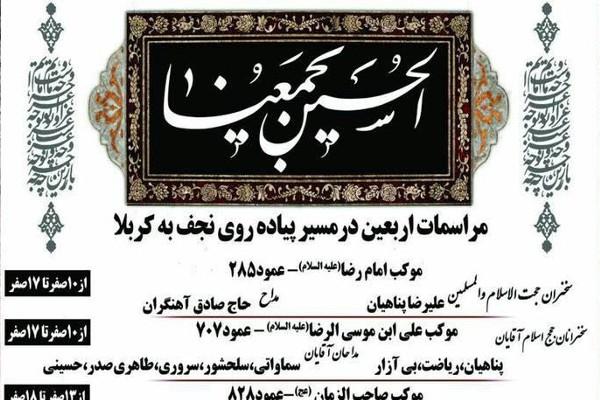 الحسین یجمعنا
مراسمات اربعین در مسیر پیاده روی نجف به کربلا
موکب امام رضا(علیه السلام)-عمود۲۸۵
از۱۰صفرتا۱۷صفر
سخنران حجت الاسلام والمسلمین علیرضا پناهیان مداح حاج صادق آهنگران
موکب علی ابن موسی الرضا(علیه السلام)-عمود۷۰۷
از۱۰صفرتا۱۷صفر
سخنرانان حجج اسلام آقایان
پناهیان،ریاضت،بی آزار مداحان آقایان سماواتی،سلحشور،سروری،طاهری صدر،حسینی
موکب صاحب الزمان(عج)-عمود۸۲۸
از۱۳صفرتا۱۸صفر